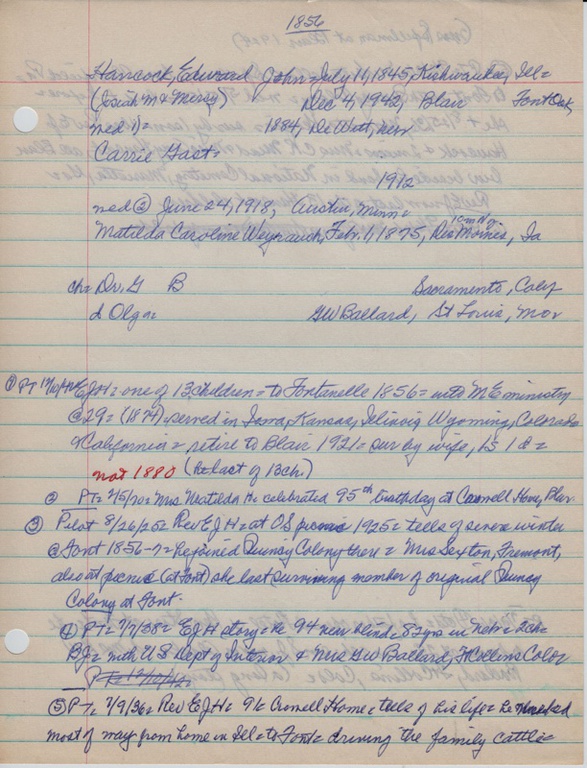 1856
Hancock, Edward John = July 11, 1845, Kishwaukee, Ill =
(Josiah M & Mercy) Dec 4, 1942, Blair Font Cem,
med 1) = 1884, De Witt, Nebr
Carrie Gast =
1912
med ② June 24, 1918, Austin, Minn =
Matilda Caroline Weyrauch, Feb. 1, 1875, Des Moines, Ia
ch = Dr. G B Sacramento, Calif
d Olga = GW Ballard, St Louis, Mo =
① PT EJH = one of 13 children = to Fontanelle 1856 = into ME ministry
@ 29 = (1874) served in Iowa, Kansas, Illinois Wyoming, Colorado
& California = retire to Blair 1921 = sur by wife, 1s 1d =
not 1880 (he last of 13 ch.)
② PT = 2/5/70 = Mrs Matilda H = celebrated 95th birthday at Crowell Home, Blair
③ Pilot 8/26/25 = Rev EJH = at O.S. picnic 1925 = tells of severe winter
@ Font 1856-7 = he joined Quincy Colony there = Mrs Sexton, Fremont,
also at picnic (at Font) she last surviving member of original Quincy
Colony at Font.
④ PT = 7/7/38 = EJH story = he 94 now blind = 82 yrs in Nebr = 2 ch =
BJ = with U S Dept of Interior & Mrs GW Ballard, Ft Collins Colo
⑤ PT = 7/9/36 = Rev EJH = 91 = Crowell Home = tells of his life = he
most of way from home in Ill = to Font = driving the family cattle =